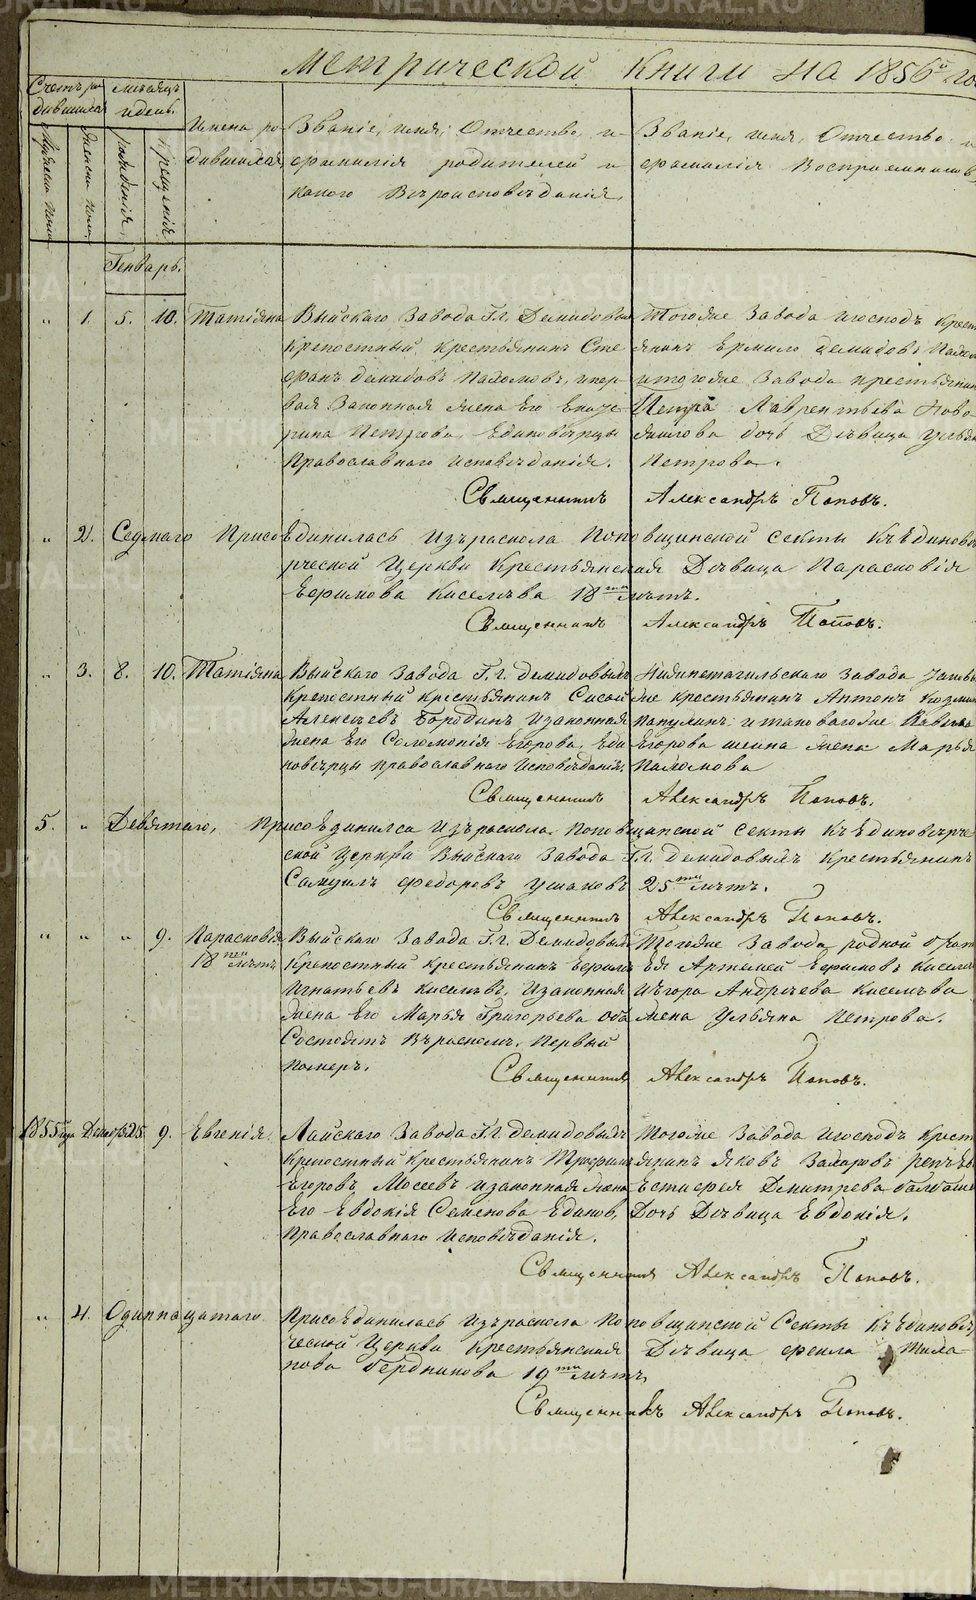 Метрической книги на 1856й го
Счетъ ро
дившихся
месяцъ
и день.
Мужеска пола
Женска пола
рожденія
крещенія
Имена ро
дившихся
Званіе, имя, Отчество, и
фамилія родителей и
какого Вѣроисповѣданія,
Званіе, имя, Отчество и
фамилія Воспріемниковъ
Генварь.
„ 1. 5. 10. Татіяна
Выйскаго Завода Гг. Демидовыхъ
крепостный крестьянинъ Сте
фанъ Демидовъ Пахомовъ, и пер
вая Законная жена Его Екате
рина Петрова, Единовѣрцы
Православнаго исповѣданія.
Тогоже Завода и господъ крест
янинъ Ермило Демидовъ Пахом
и тогоже Завода крестьянин
Петра Лаврентьева Ново
дочь Дѣвица Ульян
Петрова.
Священникъ Александръ Поповъ.
„ 2. Седмаго Присоединилась Изъ раскола Поповщинской секты Къ Единовѣ
рческой Церкви Крестьянская Дѣвица Парасковія
Ефимова Киселѣва 18ти лѣтъ.
Священникъ Александръ Поповъ.
„ 3. 8. 10. Татіяна
Выйскаго Завода Гг. Демидовыхъ
крепостный крестьянинъ Сысой
Алексѣевъ Бородинъ и законная
жена Его Соломонія Егорова, Еди
новѣрцы православнаго исповѣданія.
Нижнетагильскаго Завода
же крестьянинъ Антонъ Козмин
и таковагоже
Егорова жена Марья
Пахомова
Священникъ Александръ Поповъ.
5. „ Девятаго, Присоединился Изъ раскола Поповщинской секты Къ Единовѣрче
ской Церкви Выйскаго Завода Гг. Демидовыхъ Крестьянинъ
Самуилъ Федоровъ Ушаковъ 25ти лѣтъ.
Священникъ Александръ Поповъ.
„ „ „ 9. Парасковія
18ти лѣтъ
Выйскаго Завода Гг. Демидовыхъ
Крепостный крестьянинъ Ефимъ
Игнатьевъ Киселѣвъ, И законная
жена Его Марья Григорьева оба
Состоятъ Въ расколѣ. Первый
номеръ.
Тогоже Завода родной братъ
Ея Артемей Ефимовъ Киселев
И Егора Андреева Киселѣва
жена Ульяна Петрова.
Священникъ Александръ Поповъ.
1855 года Декабр. 25. 9. Евгенія.
Лайскаго Завода Гг. Демидовыхъ
крепостный крестьянинъ Трофимъ
Егоровъ Мосеевъ и законная жена
Его Евдокія Семенова Единов,
Православнаго Исповѣданія.
Тогоже Завода и господъ крест
янинъ Яковъ Захаровъ
Естифея Дмитрева
Дочь Дѣвица Евдокія.
Священникъ Александръ Поповъ.
„ 4. Одиннацатаго
Присоединилась Изъ раскола Поповщинской Секты Къ Единовѣр
ческой Церкви Крестьянская Дѣвица
Бердникова 19ти лѣтъ
Священникъ Александръ Поповъ.
METRIKI.GASO-URAL.RU